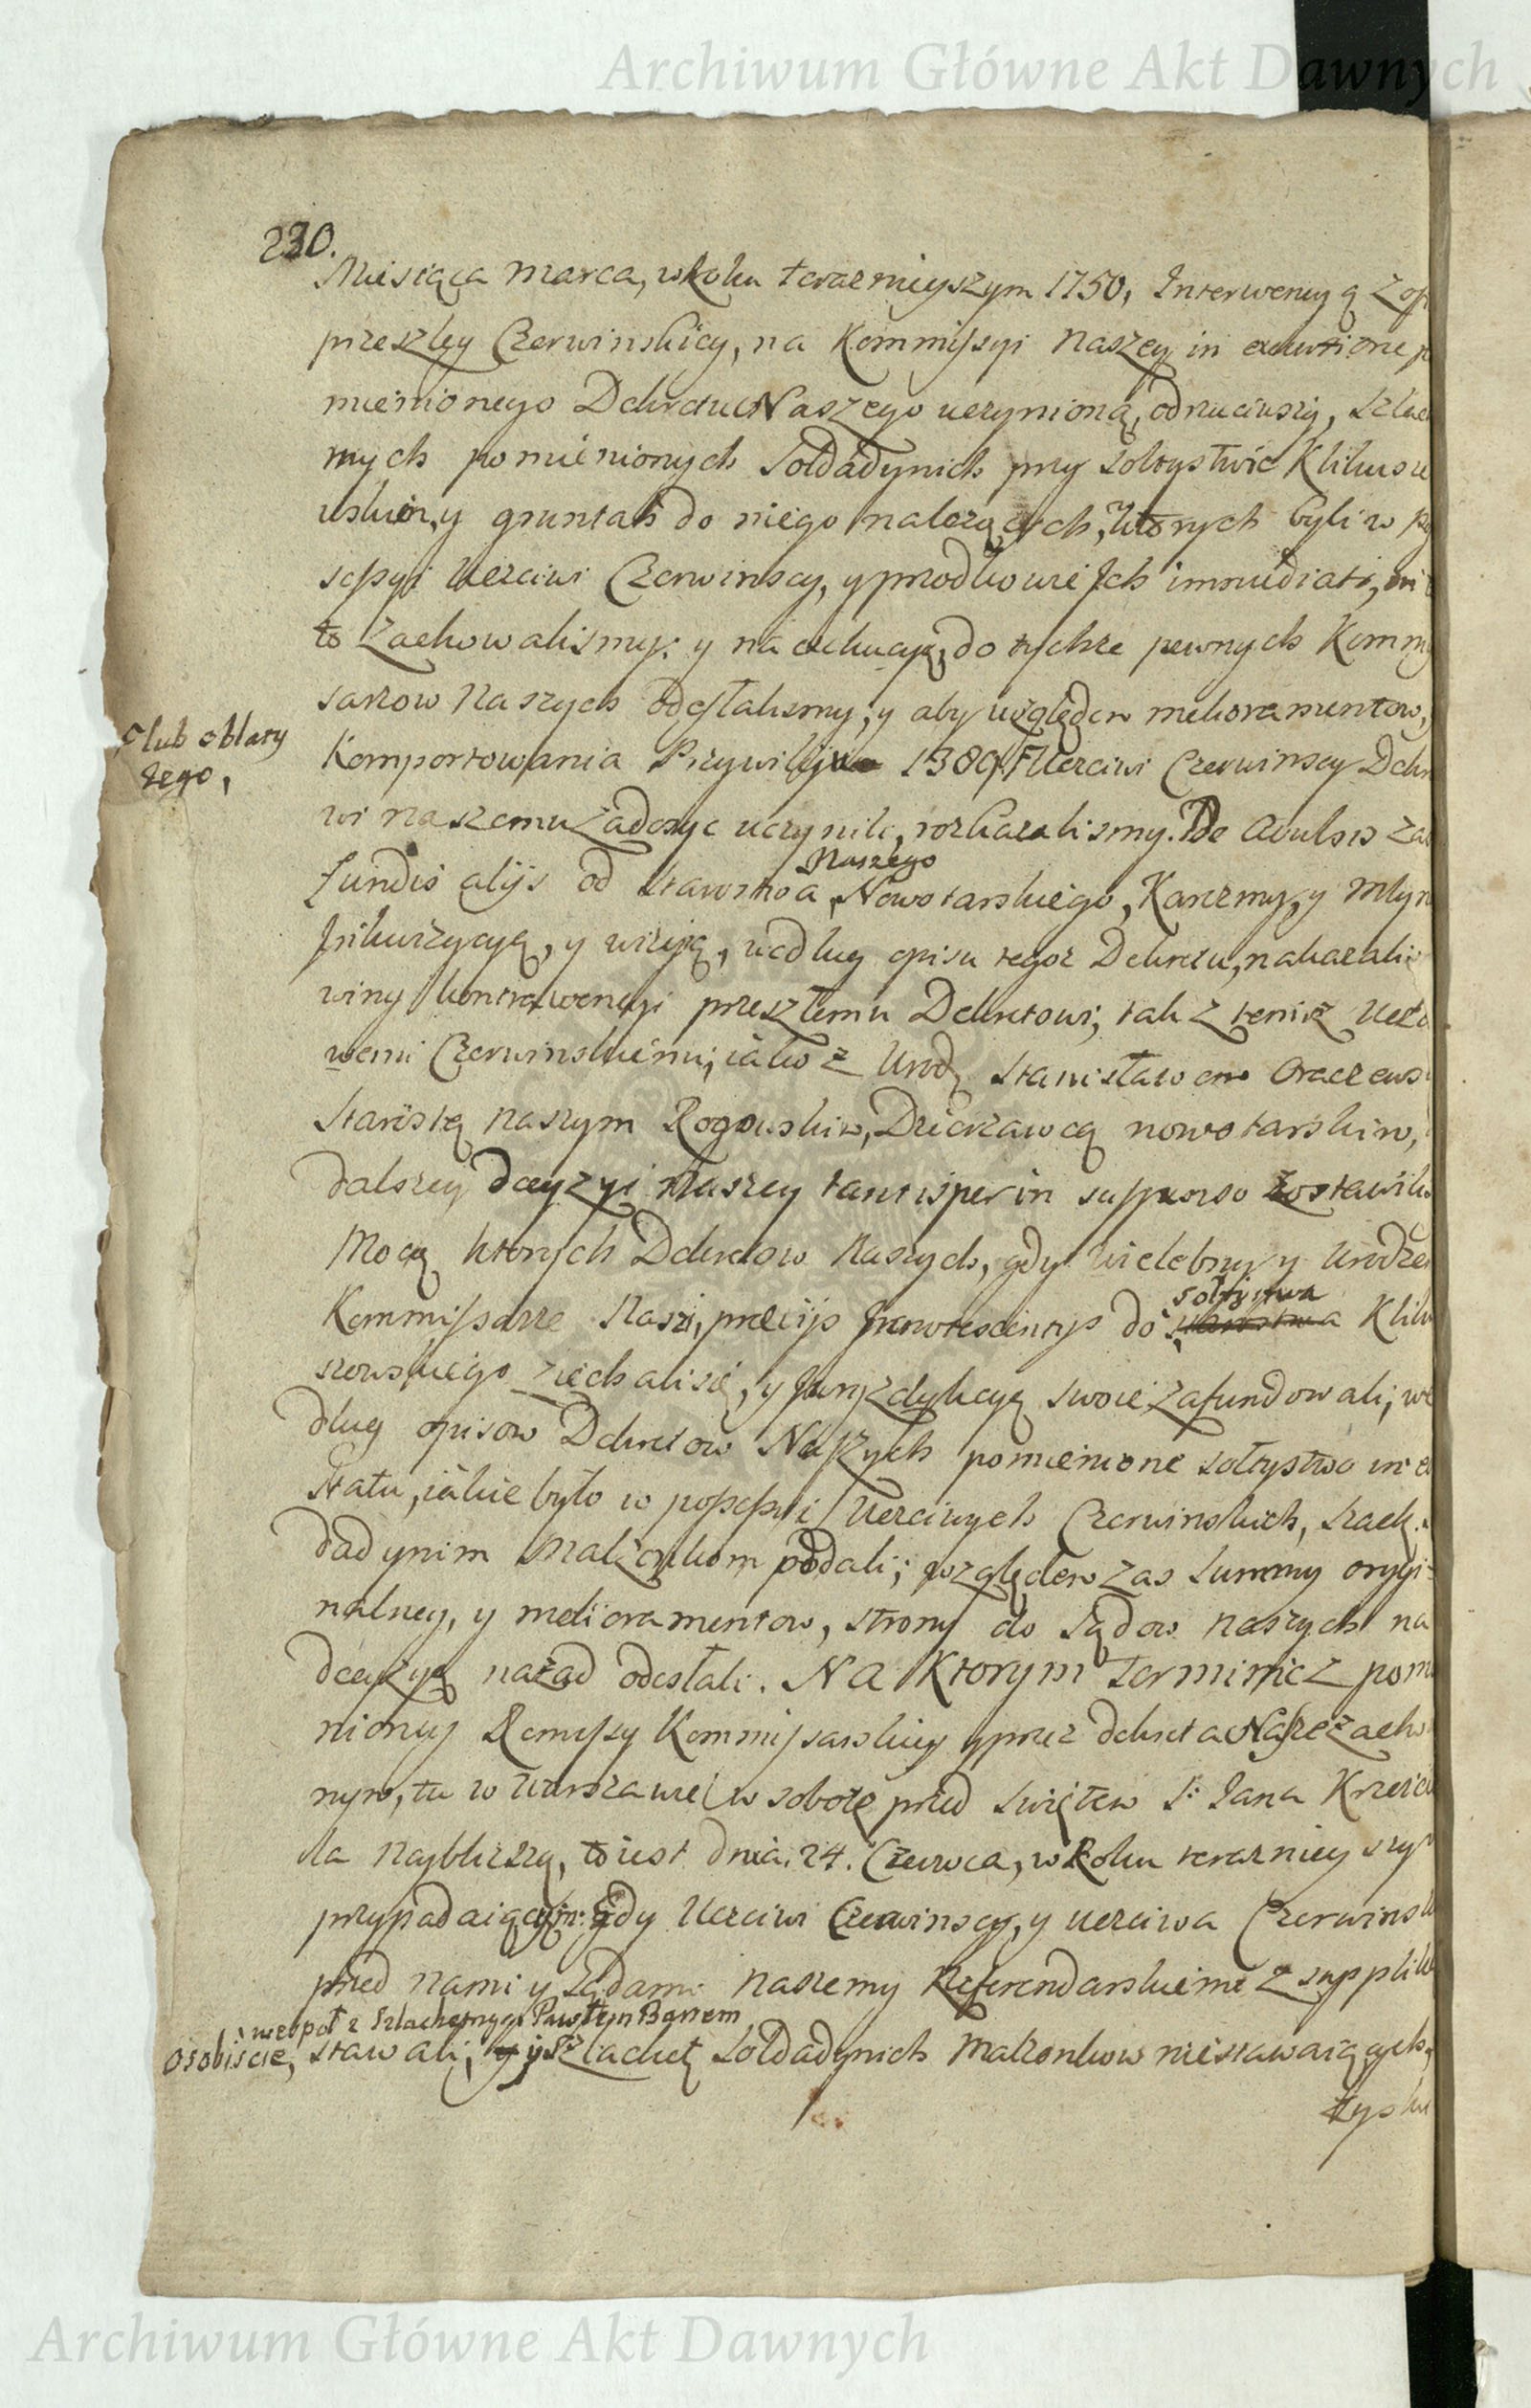 Archiwum Główne Akt Dawnych
230.
Miesiąca Marca, w Roku teraznieyszym 1750, Interwencyą Zof
przeszłey Czerwinskiey, na Kommissyi Naszey in executione p
mienionego Dekretu Naszego uczynioną, odrzuciwszy, Szlach
nych pomienionych Soldadynich przy Sołtystwie Klikuszo
wskim, y gruntach do niego należących, których byli w po
sessyi Uczciwi Czerwinscy, y przodkowie Jch immediati, in
to zachowalismy: y na exekucyą, do tychże pewnych Kommi
sarzow Naszych odesłalismy, y aby względem melioramentow,
Komportowania Przywileju 1380 F Uczciwi Czerwinscy Dekre
F lub oblaty
tego,
wi naszemu zadosyc uczynili, rozkazalismy. De Avulsis zas
fundis alijs od Starostwa Naszego Nowotarskiego, Karczmy, y Młyn
Jnkwizycyą, y wizyą, według opisu tegoż Dekretu, nakazalis
winy kontrawencyi przeszłemu Dekretowi, tak z temiż Uczci
wemi Czerwinskiemi, iako z Urodz. Stanisławem Oraczews
Starostą Naszym Rogowskim, Dzierżawcą nowotarskim,
dalszey decyzyi Naszey tantisper in suspenso zostawili
Mocą których Dekretow Naszych, gdy Wielebny y Urodze
Kommissarze Naszi, precijs Jnnotescentijs do Starostwa sołtystwa Kliku
szowskiego ziechali się, y Juryzdykcyą swoię zafundowali, we
dług opisow Dekretow Naszych pomienione sołtystwo in e
Statu, iakie było w possessyi Uczciwych Czerwinskich, Szach.
dadynim Małżonkom podali; względem zas Summy orygi=
nalney, y melioramentow, strony do Sądow Naszych na
decyzyą nazad odesłali. Na Którym Terminie z pom
nioney Remissy Kommissarskiey y przez dekreta Nasze zacho
nym, tu w Warszawie w sobotę przed Swiętem S: Jana Krzcici
la Naybliższą, to iest dnia 24. Czerwca, w Roku teraznieyszy
przypadaiącym: Gdy Uczciwi Czerwinscy, y uczciwa Czerwinsk
przed Nami y Sądami Naszemy Referendarskiemi z supplik
wespoł z Szlachetnym Pawłem Banem
osobiście, stawali, y Szlachet. Soldadynich Małżonkow niestawaiących,
zysku
Archiwum Główne Akt Dawnych